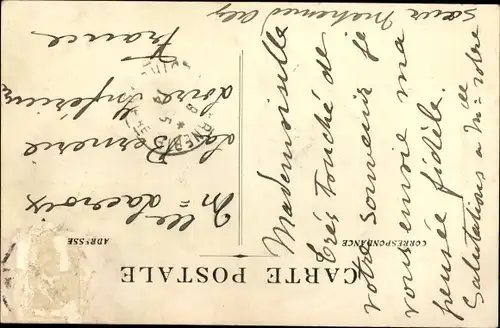 CARTE POSTALE
CORRESPONDANCE
ADRESSE
Mademoiselle
Très touché de
votre souvenir je
vous envoie ma
pensée fidèle.
Salutations a Mce votre
sœur Mohamed Aly
Mlle Lacroix
La Bernerie
Loire Inférieure
France